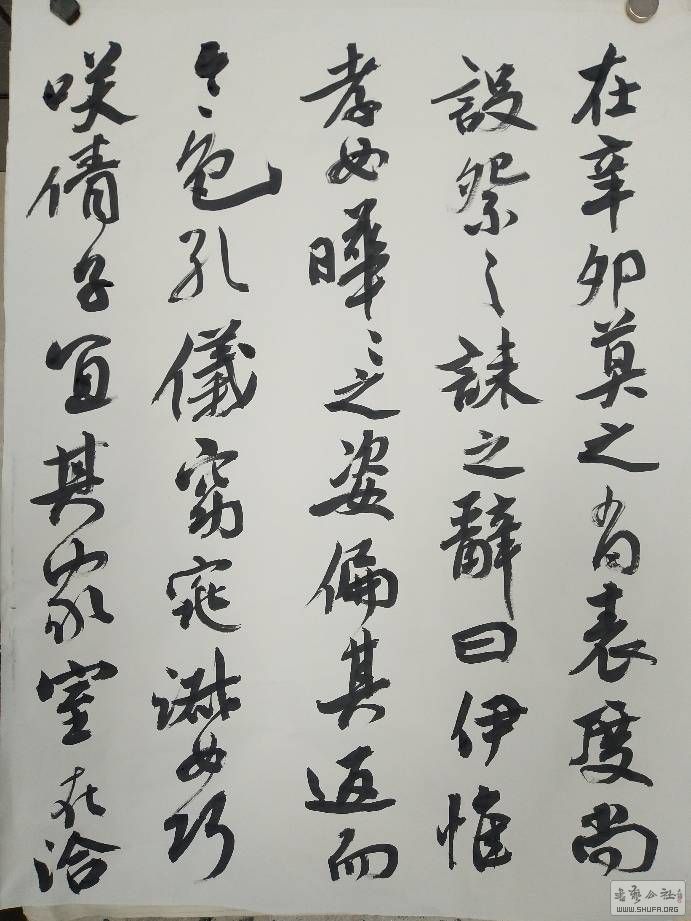 在辛卯莫之有表度尚
設祭之誄之辭曰伊惟
孝女曄〻之姿偏其返而
令〻色孔儀窈窕淑女巧
咲倩子宜其家室在洽
书艺公社
WWW.SHUFA.ORG